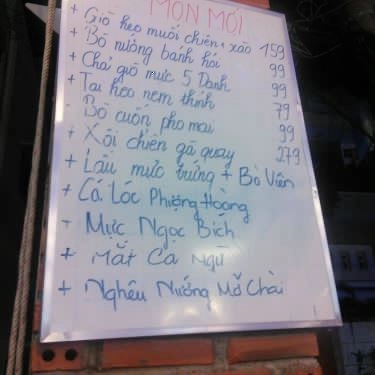 MÓN MỚI
+ Giò heo muối chiên, xào 159
+ Bò nướng bánh hỏi 99
+ Chả giò mực 5 Danh 99
+ Tai heo nem thính 79
- Bò cuốn pho mai 99
+ Xôi chiên gà quay 279
+ Lẩu mực trứng + Bò Viên
+ Cá Lóc Phượng Hoàng
- Mực Ngọc Bích
+ Mắt Cá Ngừ
+ Nghêu Nướng Mỡ Chài